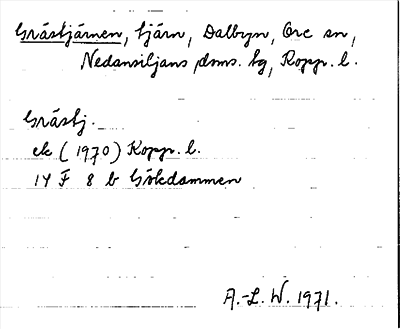 Gråstjärnen, tjärn, Dalbyn, Ore sn,
Nedansiljans doms. tg, Kopp. l.
Gråstj.
ek (1970) Kopp. l.
14 F 8 b Gökdammen
A.-L. W. 1971.